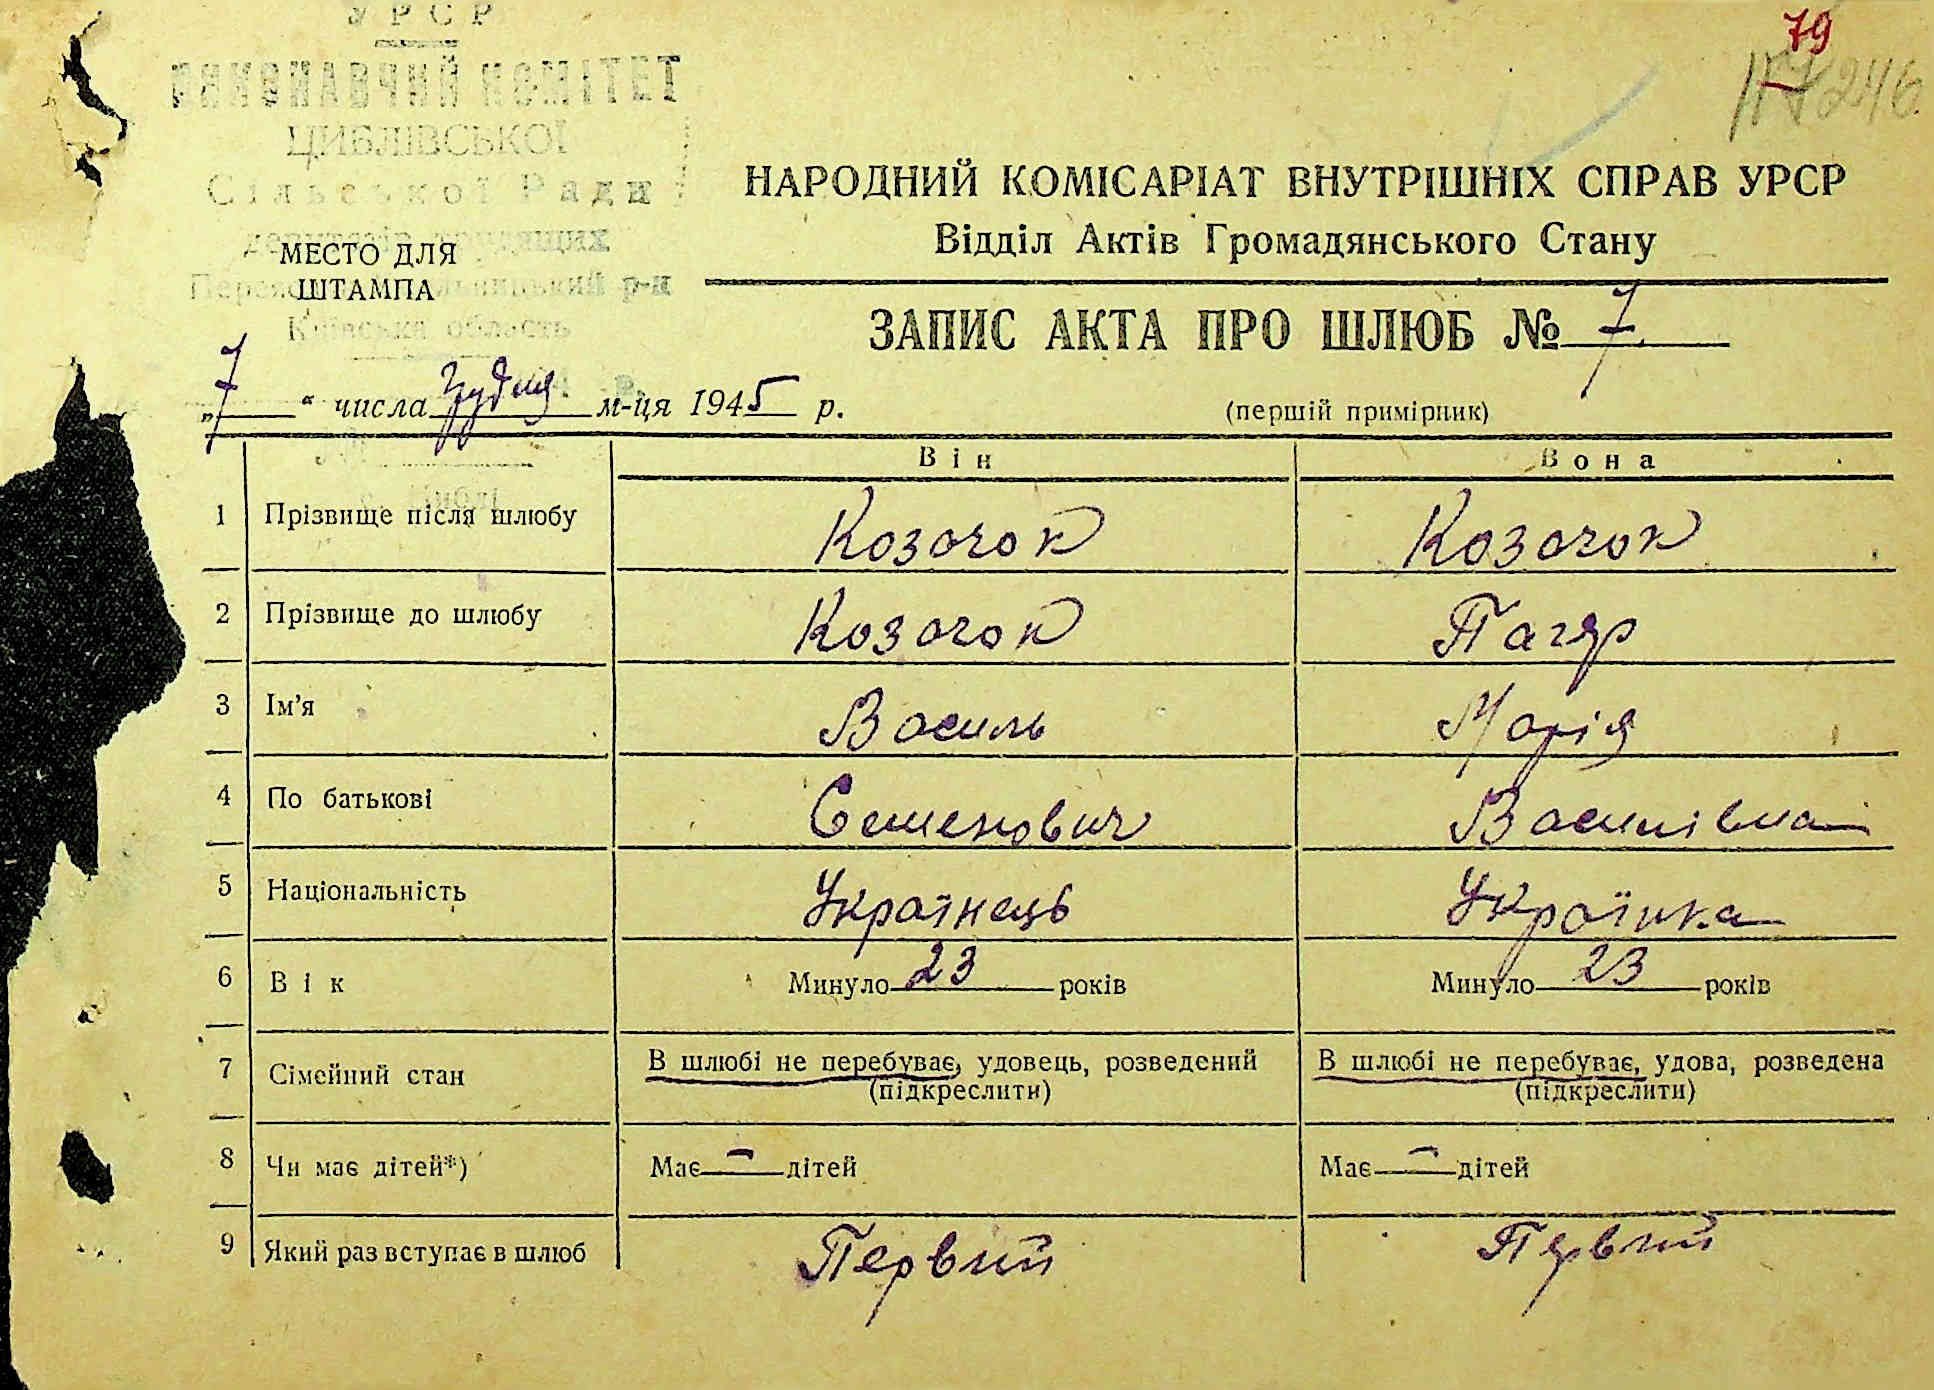 УРСР
ВИКОНАВЧИЙ КОМІТЕТ
ЦИБЛІВСЬКОЇ
Сільської Ради
депутатів трудящих
р-н
Київська область
МЕСТО ДЛЯ
ШТАМПА
79
246
НАРОДНИЙ КОМІСАРІАТ ВНУТРІШНІХ СПРАВ УРСР
Відділ Актів Громадянського Стану
ЗАПИС АКТА ПРО ШЛЮБ № 7.
„7“ числа грудня м-ця 1945 р.
(першій примірник)
Він Вона
1 Прізвище після шлюбу Козачок Козачок
2 Прізвище до шлюбу Козачок
3 Ім’я Василь Марія
4 По батькові Семенович Василівна
5 Національність Українець Українка
6 Вік Минуло 23 років Минуло 23 років
7 Сімейний стан В шлюбі не перебуває, удовець, розведений В шлюбі не перебуває, удова, розведена
(підкреслити) (підкреслити)
8 Чи має дітей*) Має — дітей Має — дітей
9 Який раз вступає в шлюб Первий Первий